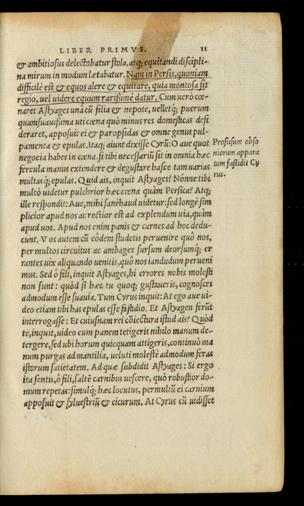 LIBER PRIMVS. 11
& ambitiosus delectabatur stola, atq; equitandi discipli-
na mirum in modum lætabatur. Nam in Persis, quoniam
difficile est & equos alere & equitare, quia montosa sit
regio, uel uidere equum rarissime datur. Cum uerò cœ-
naret Astyages unà cū filia & nepote, uelletq; puerum
quàm suauissima uti cœna quò minus res domesticas desi
deraret, apposuit ei & paropsidas & omne genus pul-
pamenta & epulas. Itaq; aiunt dixisse Cyrū: O aue quot
negocia habes in cœna, si tibi necessariū sit in omnia hæc
fercula manus extendere & degustare hasce tam uarias
multasq; epulas. Quid ais, inquit Astyages? Nonne tibi
multò uidetur pulchrior hæc cœna quàm Persica? Atq;
ille respondit: Aue, mihi sanè haud uidetur: sed longè sim
plicior apud nos ac rectior est ad explendum uia, quàm
apud uos. Apud nos enim panis & carnes ad hoc dedu-
cunt. Vos autem cū eòdem studetis peruenire quò nos,
per multos circuitus ac ambages sursum deorsumq; er
rantes uix aliquando uenitis, quò nos iandudum perueni
mus. Sed ô fili, inquit Astyages, hi errores nobis molesti
non sunt: quòd si hæc tu quoq; gustaueris, cognosces
admodum esse suauia. Tum Cyrus inquit: At ego aue ui-
deo etiam tibi has epulas esse fastidio. Et Astyagen ferūt
interrogasse: Et cuiusnam rei cōiectura istud ais? Quòd
te, inquit, uideo cum panem tetigeris nihilo manum de-
tergere, sed ubi horum quicquam attigeris, continuò ma
num purgas ad mantilia, ueluti molestè admodum feras
istorum satietatem. Ad quæ subdidit Astyages: Si ergo
ita sentis, ô fili, saltē carnibus uescere, quò robustior do-
mum repetas: simulq; hæc locutus, permultū ei carnium
apposuit & syluestriū & cicurum. At Cyrus cū uidisset
Profusum obso
niorum appara
tum fastidit Cy
rus.